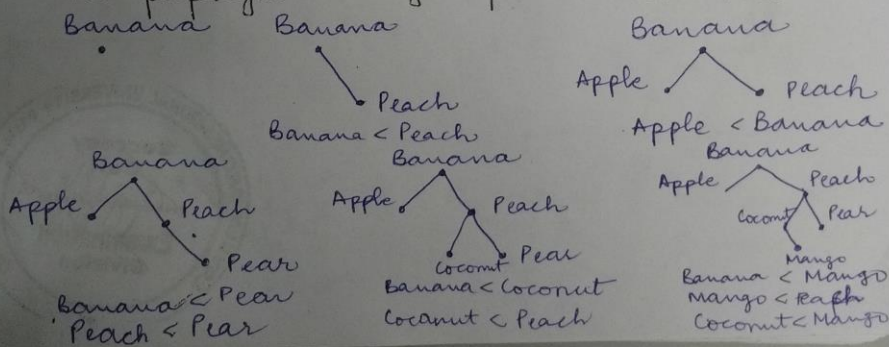 Banana
Banana
Peach
Banana < Peach
Banana
Apple
Peach
Apple < Banana
Banana
Apple
Peach
Pear
Banana < Pear
Peach < Pear
Banana
Apple
Peach
Coconut
Pear
Banana < Coconut
Cocanut < Peach
Banana
Apple
Peach
Coconut
Pear
Mango
Banana < Mango
Mango < Peach
Coconut < Mango